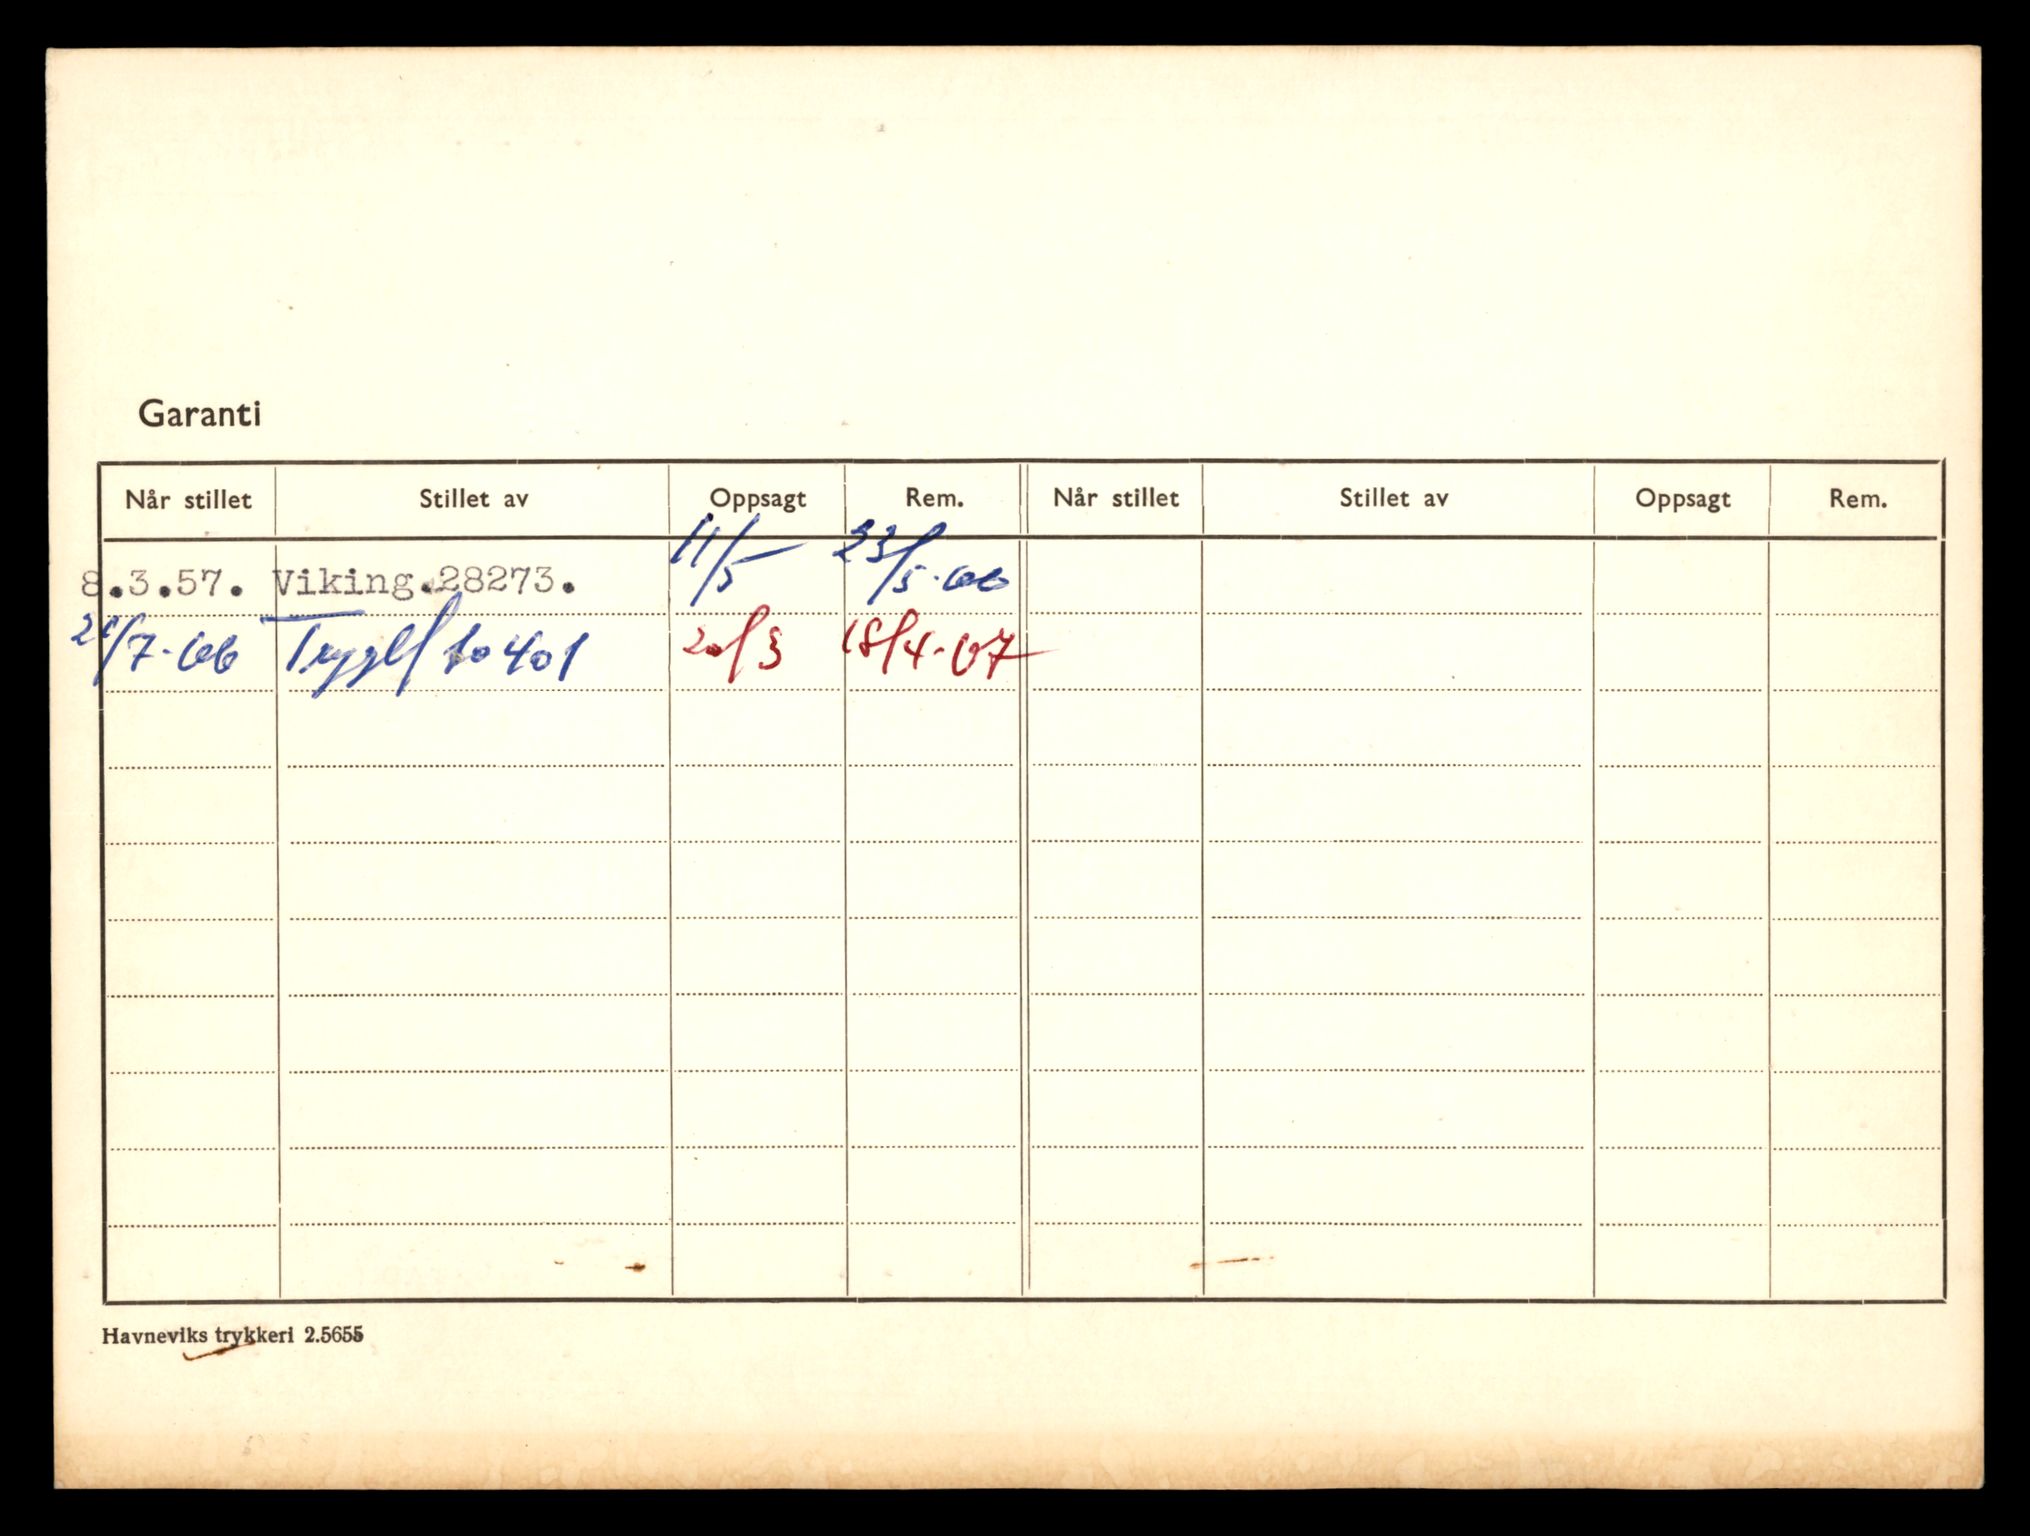 Garanti
Når stillet Stillet av Oppsagt Rem. Når stillet Stillet av Oppsagt Rem.
8.3.57. Viking.28273. 11/5 23/5-66
/7-66 40401 20/3 18/4-67
Havneviks trykkeri 2.5655